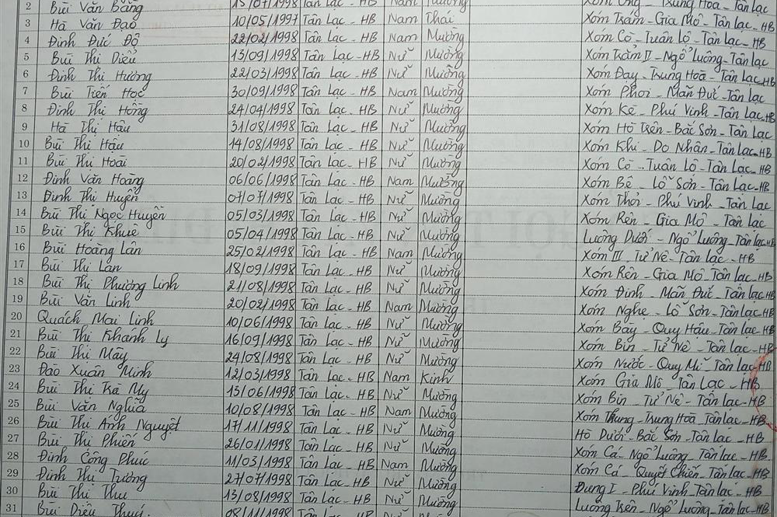 2 Bùi Văn Bằng 15/07/1998 Tân Lạc - HB Nam Mường Trung Hoà - Tân Lạc
3 Hà Văn Đạo 10/05/1997 Tân Lạc - HB Nam Thái Xóm Trám - Gia Mô - Tân Lạc - HB
4 Đinh Đức Độ 22/02/1998 Tân Lạc - HB Nữ Mường Xóm Cò - Tuân Lộ - Tân Lạc - HB
5 Bùi Thị Diều 13/09/1998 Tân Lạc - HB Nữ Mường Xóm Trằm II - Ngổ Luông - Tân Lạc
6 Đinh Thị Hương 22/03/1998 Tân Lạc - HB Nữ Mường Xóm Đay - Trung Hoà - Tân Lạc - HB
7 Bùi Tiến Học 30/09/1998 Tân Lạc - HB Nam Mường Xóm Phoi - Mãn Đức - Tân Lạc
8 Đinh Thị Hồng 24/04/1998 Tân Lạc - HB Nữ Mường Xóm Kè - Phú Vinh - Tân Lạc - HB
9 Hà Thị Hậu 31/08/1998 Tân Lạc - HB Nữ Mường Xóm Hò Trên - Bắc Sơn - Tân Lạc
10 Bùi Thị Hậu 14/08/1998 Tân Lạc - HB Nữ Mường Xóm Khi - Do Nhân - Tân Lạc
11 Bùi Thị Hoài 20/02/1998 Tân Lạc - HB Nữ Mường Xóm Cò - Tuân Lộ - Tân Lạc - HB
12 Đinh Văn Hoàng 06/06/1998 Tân Lạc - HB Nam Mường Xóm Bê - Lỗ Sơn - Tân Lạc - HB
13 Đinh Thị Huyền 07/07/1998 Tân Lạc - HB Nữ Mường Xóm Thỏi - Phú Vinh - Tân Lạc
14 Bùi Thị Ngọc Huyền 05/03/1998 Tân Lạc - HB Nữ Mường Xóm Rên - Gia Mô - Tân Lạc
15 Bùi Thị Khuê 05/04/1998 Tân Lạc - HB Nữ Mường Luông Dưới - Ngổ Luông - Tân Lạc - HB
16 Bùi Hoàng Lân 25/02/1998 Tân Lạc - HB Nam Mường Xóm III - Tử Nê - Tân Lạc - HB
17 Bùi Thị Lan 18/09/1998 Tân Lạc - HB Nữ Mường Xóm Rên - Gia Mô - Tân Lạc - HB
18 Bùi Thị Phương Linh 21/08/1998 Tân Lạc - HB Nữ Mường Xóm Định - Mãn Đức - Tân Lạc - HB
19 Bùi Văn Linh 20/02/1998 Tân Lạc - HB Nam Mường Xóm Nghe - Lỗ Sơn - Tân Lạc - HB
20 Quách Mai Linh 10/06/1998 Tân Lạc - HB Nữ Mường Xóm Bay - Quy Hậu - Tân Lạc - HB
21 Bùi Thị Khánh Ly 16/09/1998 Tân Lạc - HB Nữ Mường Xóm Bin - Tử Nê - Tân Lạc - HB
22 Bùi Thị Mây 24/08/1998 Tân Lạc - HB Nữ Mường Xóm Nước - Quy Mĩ - Tân Lạc - HB
23 Đào Xuân Minh 12/03/1998 Tân Lạc - HB Nam Kinh Xóm Gia Mô - Tân Lạc - HB
24 Bùi Thị Trà My 15/06/1998 Tân Lạc - HB Nữ Mường Xóm Bin - Tử Nê - Tân Lạc - HB
25 Bùi Văn Nghĩa 10/08/1998 Tân Lạc - HB Nam Mường Xóm Thung - Trung Hoà Tân Lạc - HB
26 Bùi Thị Ánh Nguyệt 17/11/1998 Tân Lạc - HB Nữ Mường Hò Dưới - Bắc Sơn - Tân Lạc - HB
27 Bùi Thị Phiến 26/01/1998 Tân Lạc - HB Nữ Mường Xóm Cá - Ngổ Luông - Tân Lạc - HB
28 Đinh Công Phúc 11/03/1998 Tân Lạc - HB Nam Mường Xóm Cá - Quyết Chiến - Tân Lạc - HB
29 Đinh Thị Tường 27/07/1998 Tân Lạc - HB Nữ Mường Đung I - Phú Vinh Tân Lạc - HB
30 Bùi Thị Thu 13/08/1998 Tân Lạc - HB Nữ Mường Luông Trên - Ngổ Luông - Tân Lạc - HB
31 Bùi Diệu Thuý 08/11/1998 Tân Lạc - HB Nữ Mường